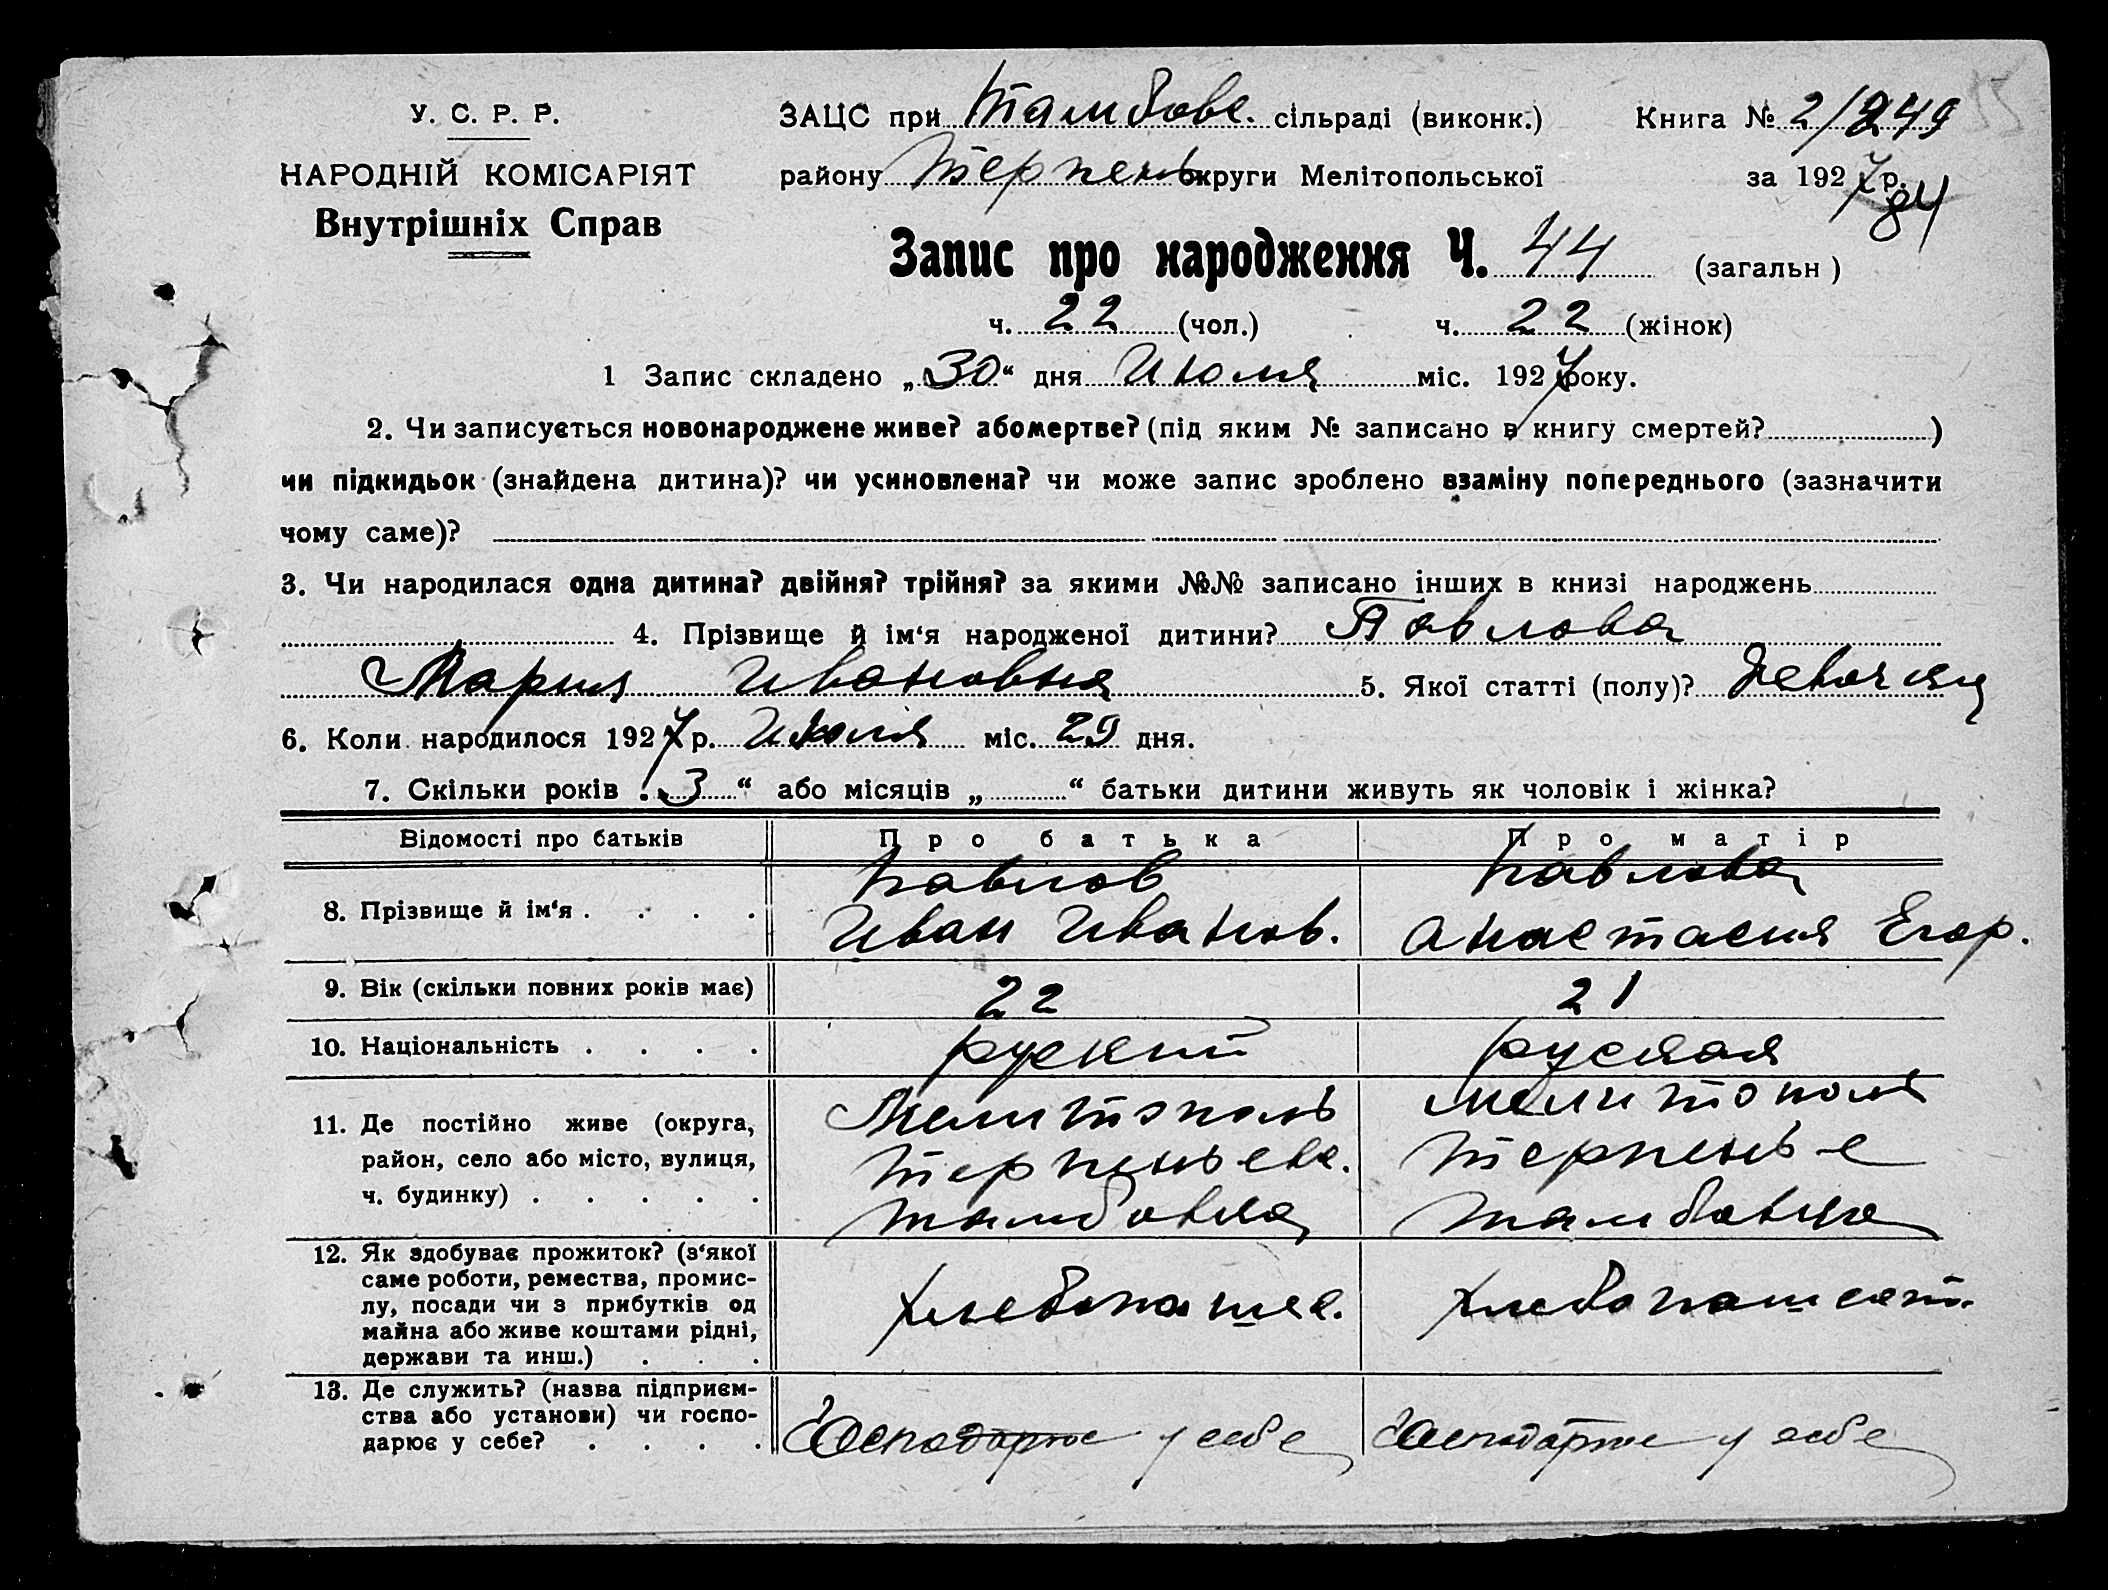 У. С. Р. Р.
НАРОДНІЙ КОМІСАРІЯТ
Внутрішніх Справ
ЗАЦС при Тамбовс. сільраді (виконк.) Книга № 2/249
району Терпень округи Мелітопольської за 1927 р.
84
Запис про народження Ч. 44 (загальн)
ч. 22 (чол.) ч. 22 (жінок)
1 Запис складено „30“ дня Июля міс. 1927 року.
2. Чи записується новонароджене живе? або мертве? (під яким № записано в книгу смертей? )
чи підкидьок (знайдена дитина)? чи усиновлена? чи може запис зроблено взаміну попереднього (зазначити
чому саме)?
3. Чи народилася одна дитина? двійня? трійня? за якими №№ записано інших в книзі народжень
4. Прізвище й ім‘я народженої дитини? Павлова
Мария Ивановна 5. Якої статті (полу)? Девочка
6. Коли народилося 1927 р. Июля міс. 29 дня.
7. Скільки років „3“ або місяців „ “ батьки дитини живуть як чоловік і жінка?
Відомості про батьків Про батька Про матір
8. Прізвище й ім‘я . . . . Павлов Иван Иванов. Павлова Анастасия Егор.
9. Вік (скільки повних років має) 22 21
10. Національність . . . . руский руская
11. Де постійно живе (округа, Мелитополь Мелитополя
район, село або місто, вулиця, Терпеньевс. Терпенье
ч. будинку) . . . . . Тамбовка Тамбовка
12. Як здобуває прожиток? (з‘якої
саме роботи, ремества, промис-
лу, посади чи з прибутків од хлебопашес. хлебопашест.
майна або живе коштами рідні,
держави та инш.) . . .
13. Де служить? (назва підприєм-
ства або установи) чи госпо-
дарює у себе? . . . . Господарює у себе Господарює у себе